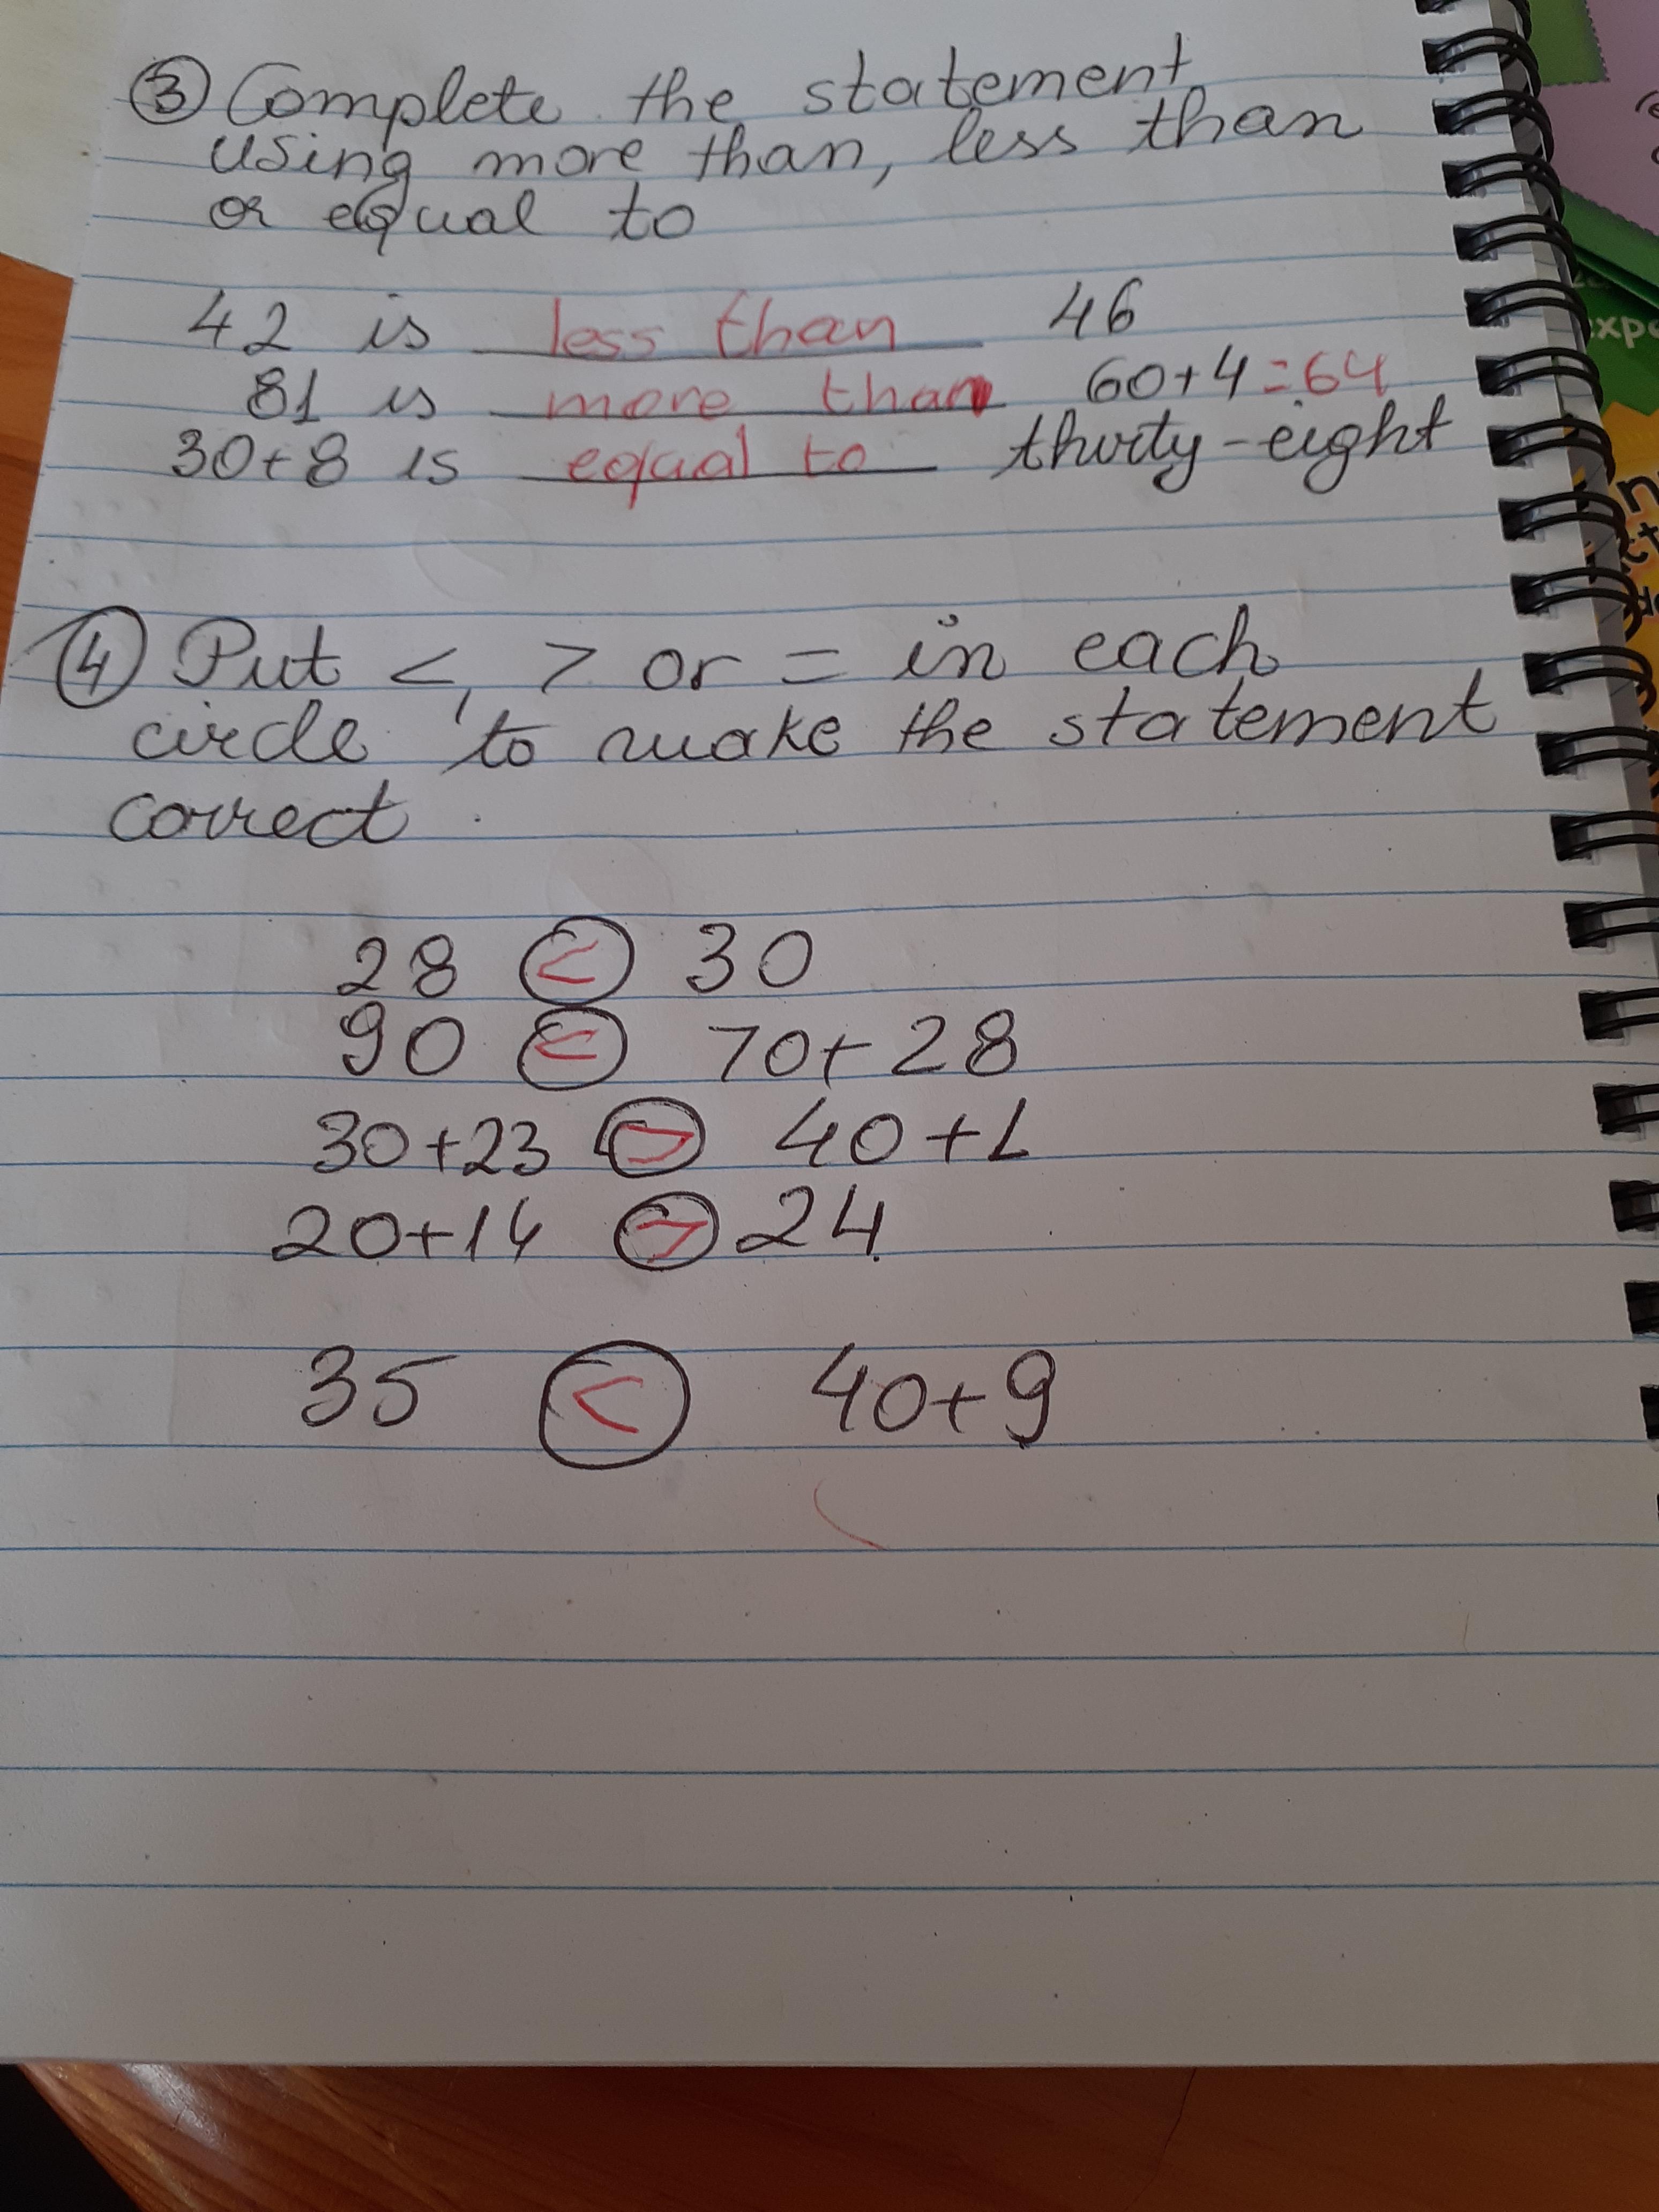 3 Complete the statement
using more than, less than
or equal to
42 is less than 46
81 is more than 60+4=64
30+8 is equal to thirty-eight
4 Put <, > or = in each
circle to make the statement
correct.
28 < 30
90 < 70+28
30+23 > 40+1
20+14 > 24
35 < 40+9